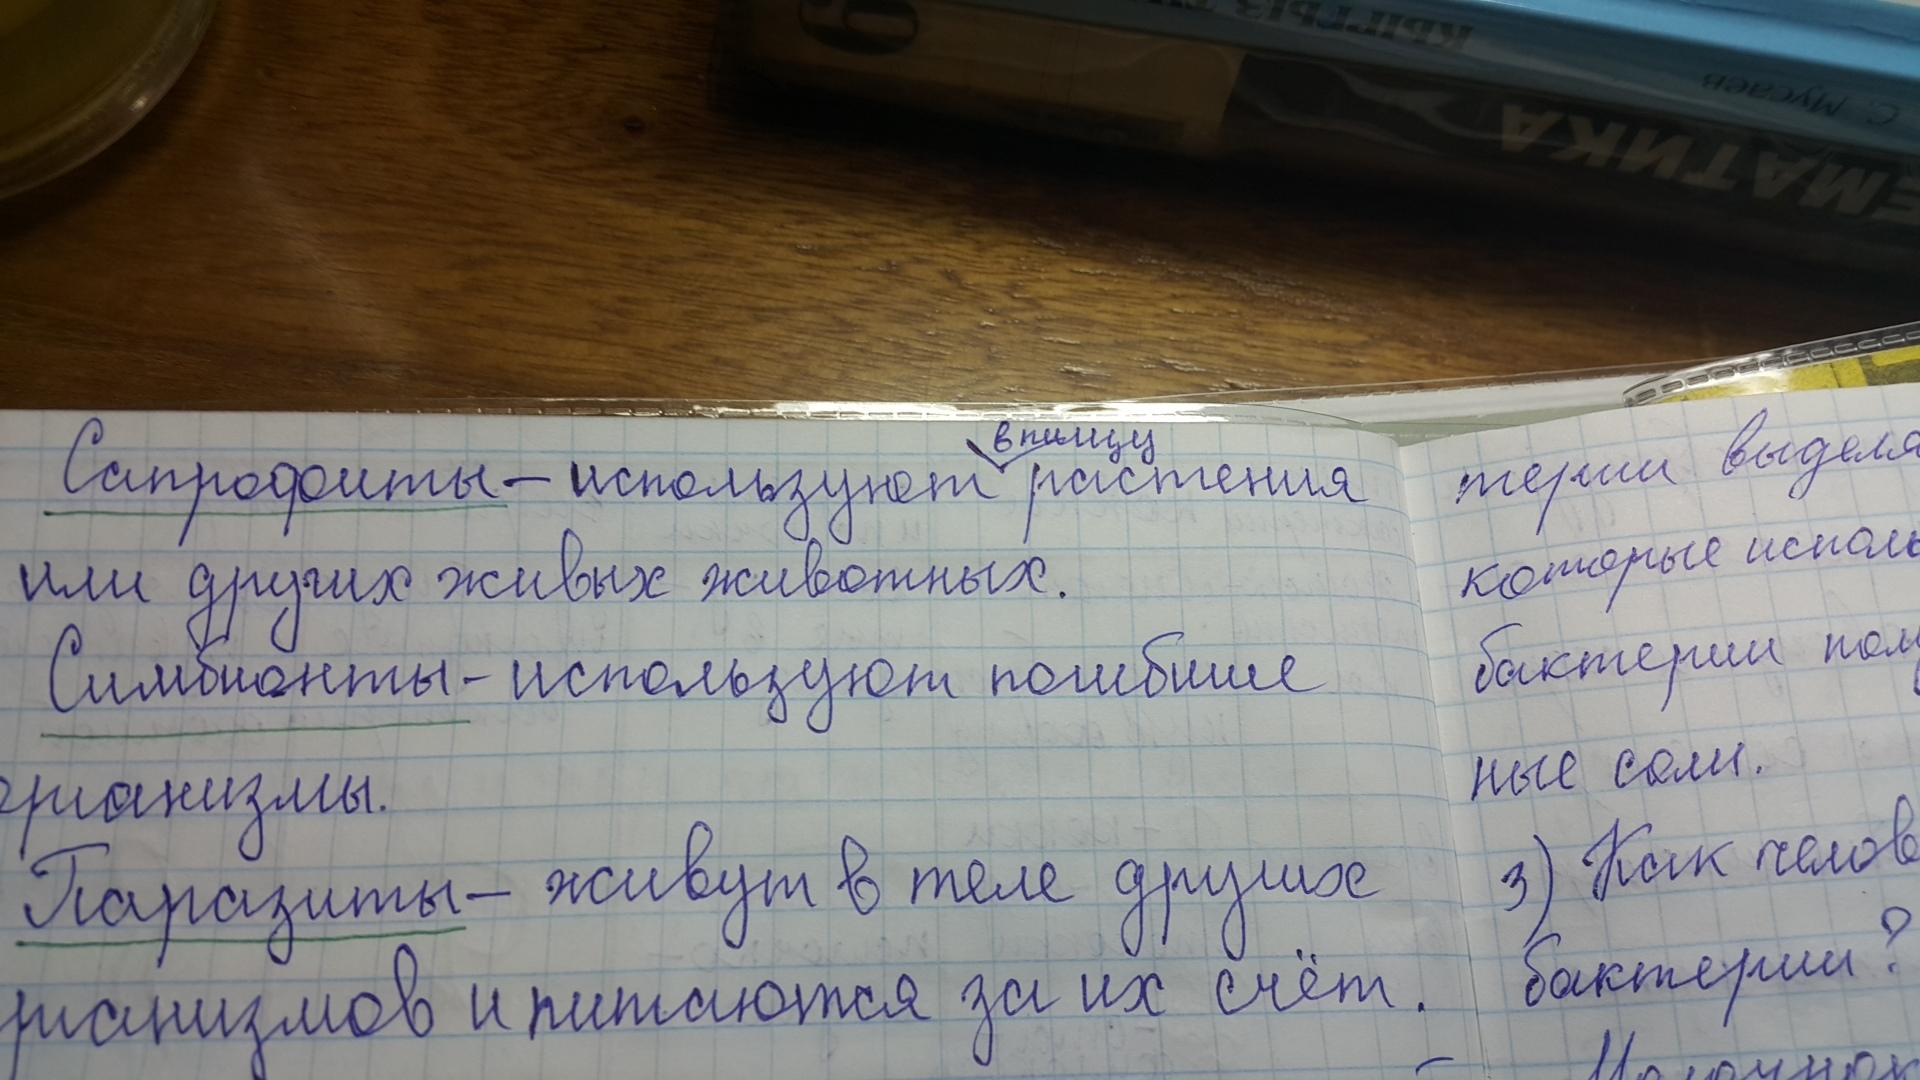 КЫРГЫЗ
С. Мусаев
ЕМАТИКА
в пищу
Сапрофиты – используют растения
или других живых животных.
Симбионты – используют погибшие
организмы.
Паразиты – живут в теле других
рганизмов и питаются за их счёт.
терии выделя
которые исполь
бактерии полу
ные соли.
3) Как челов
бактерии?